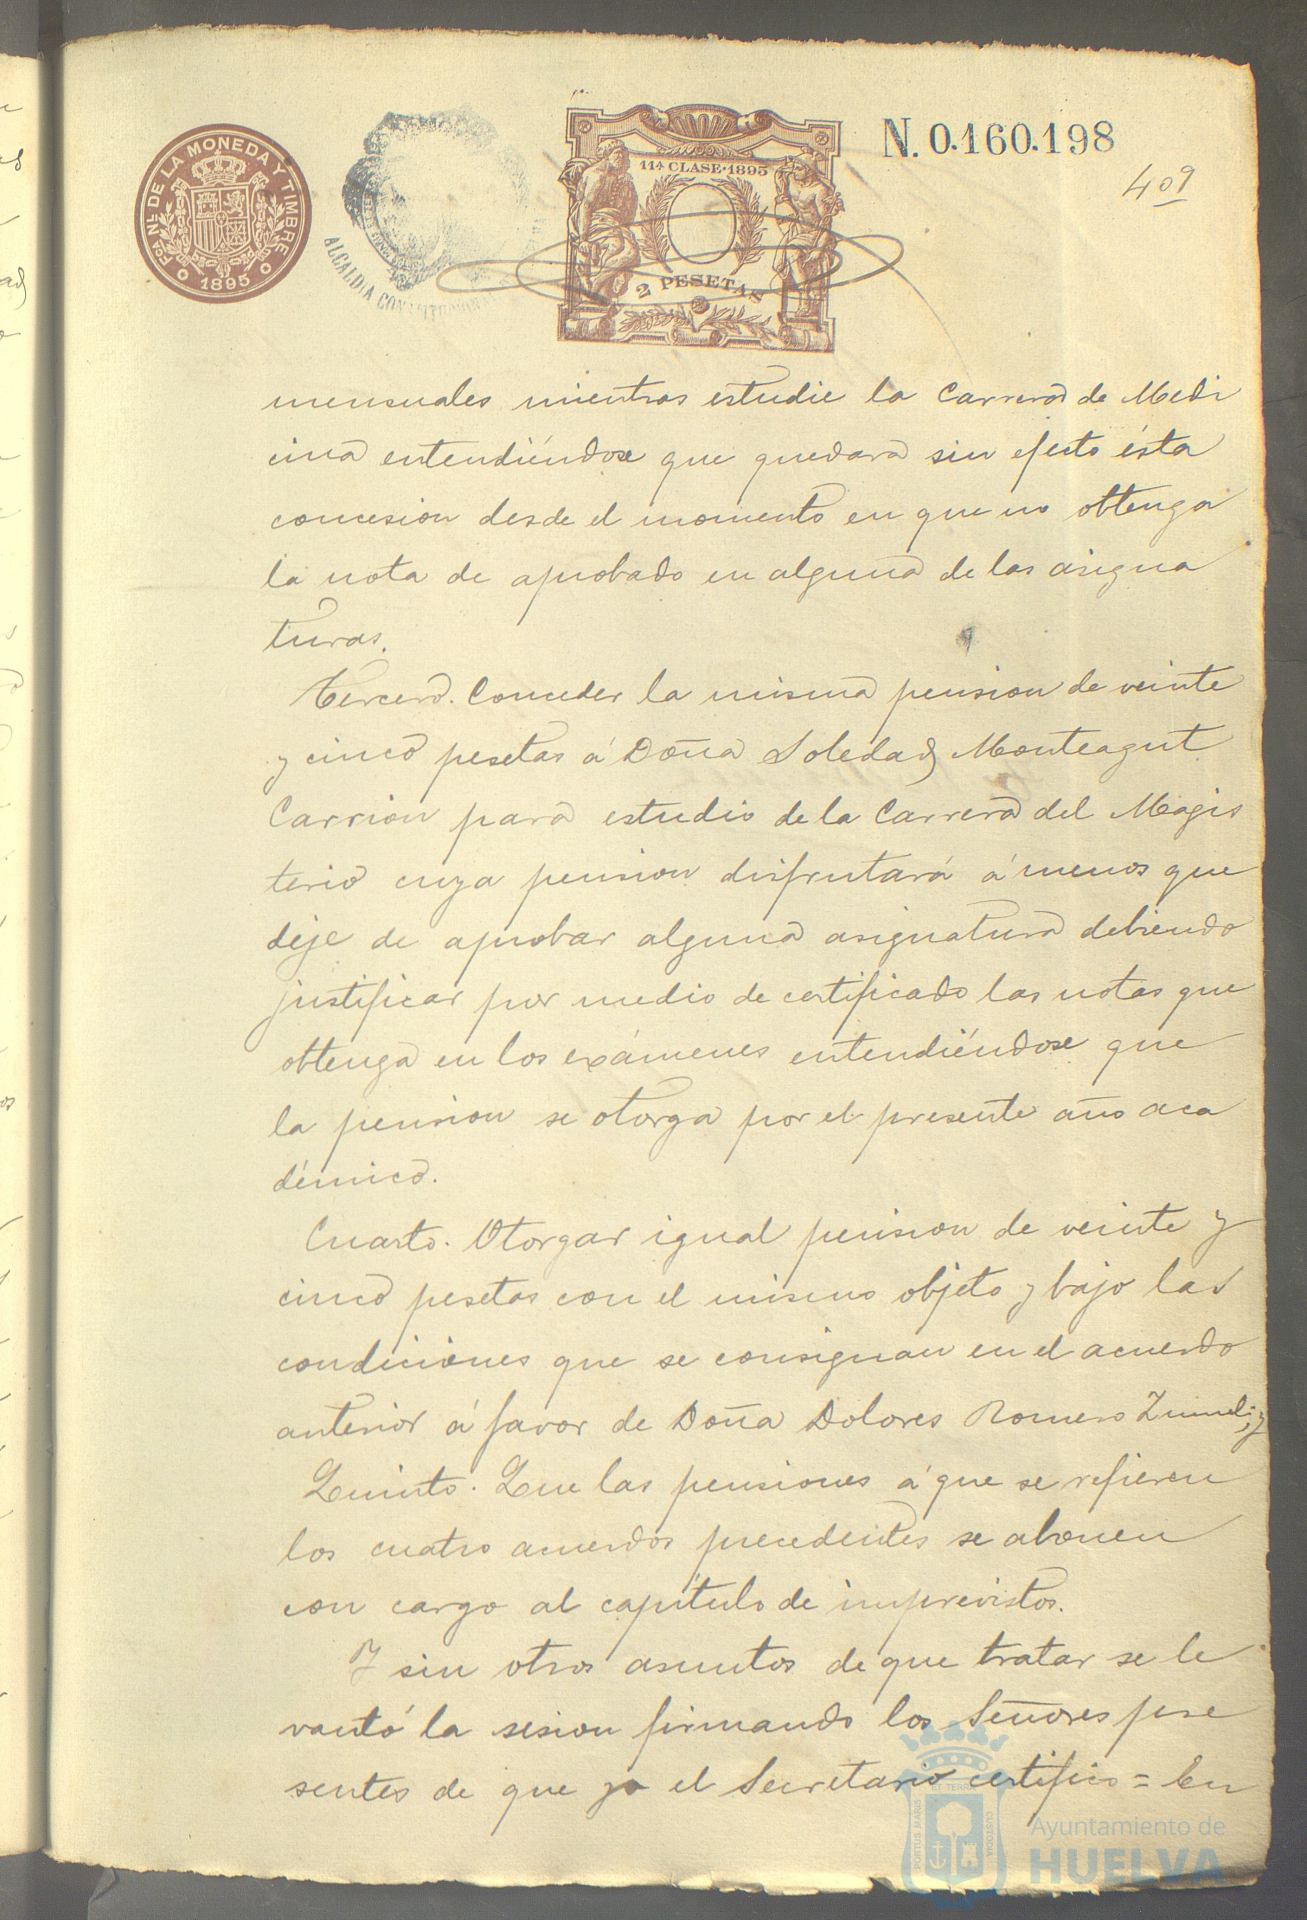 FCA. NL. DE LA MONEDA Y TIMBRE
1895
ALCALDIA CONSTITUCIONAL
11ª CLASE·1895
2 PESETAS
N. 0.160.198
409
mensuales mientras estudie la Carrera de Medi
cina entendiéndose que quedara sin efecto ésta
concesion desde el momento en que no obtenga
la nota de aprobado en alguna de las asigna
turas.
Tercero. Conceder la misma pension de veinte
y cinco pesetas á Doña Soledad Monteagut
Carrion para estudio de la Carrera del Magis
terio cuya pension disfrutará á menos que
deje de aprobar alguna asignatura debiendo
justificar por medio de certificado las notas que
obtenga en los exámenes entendiéndose que
la pension se otorga por el presente año aca
démico.
Cuarto. Otorgar igual pension de veinte y
cinco pesetas con el mismo objeto y bajo las
condiciones que se consignan en el acuerdo
anterior á favor de Doña Dolores Romero
Quinto. Que las pensiones á que se refieren
los cuatro acuerdos precedentes se abonen
con cargo al capítulo de imprevistos.
Y sin otros asuntos de que tratar se le
vantó la sesion firmando los Señores pre
sentes de que yo el Secretario certifico = En
PORTUS MARIS ET TERRAE CUSTODIA
Ayuntamiento de
HUELVA